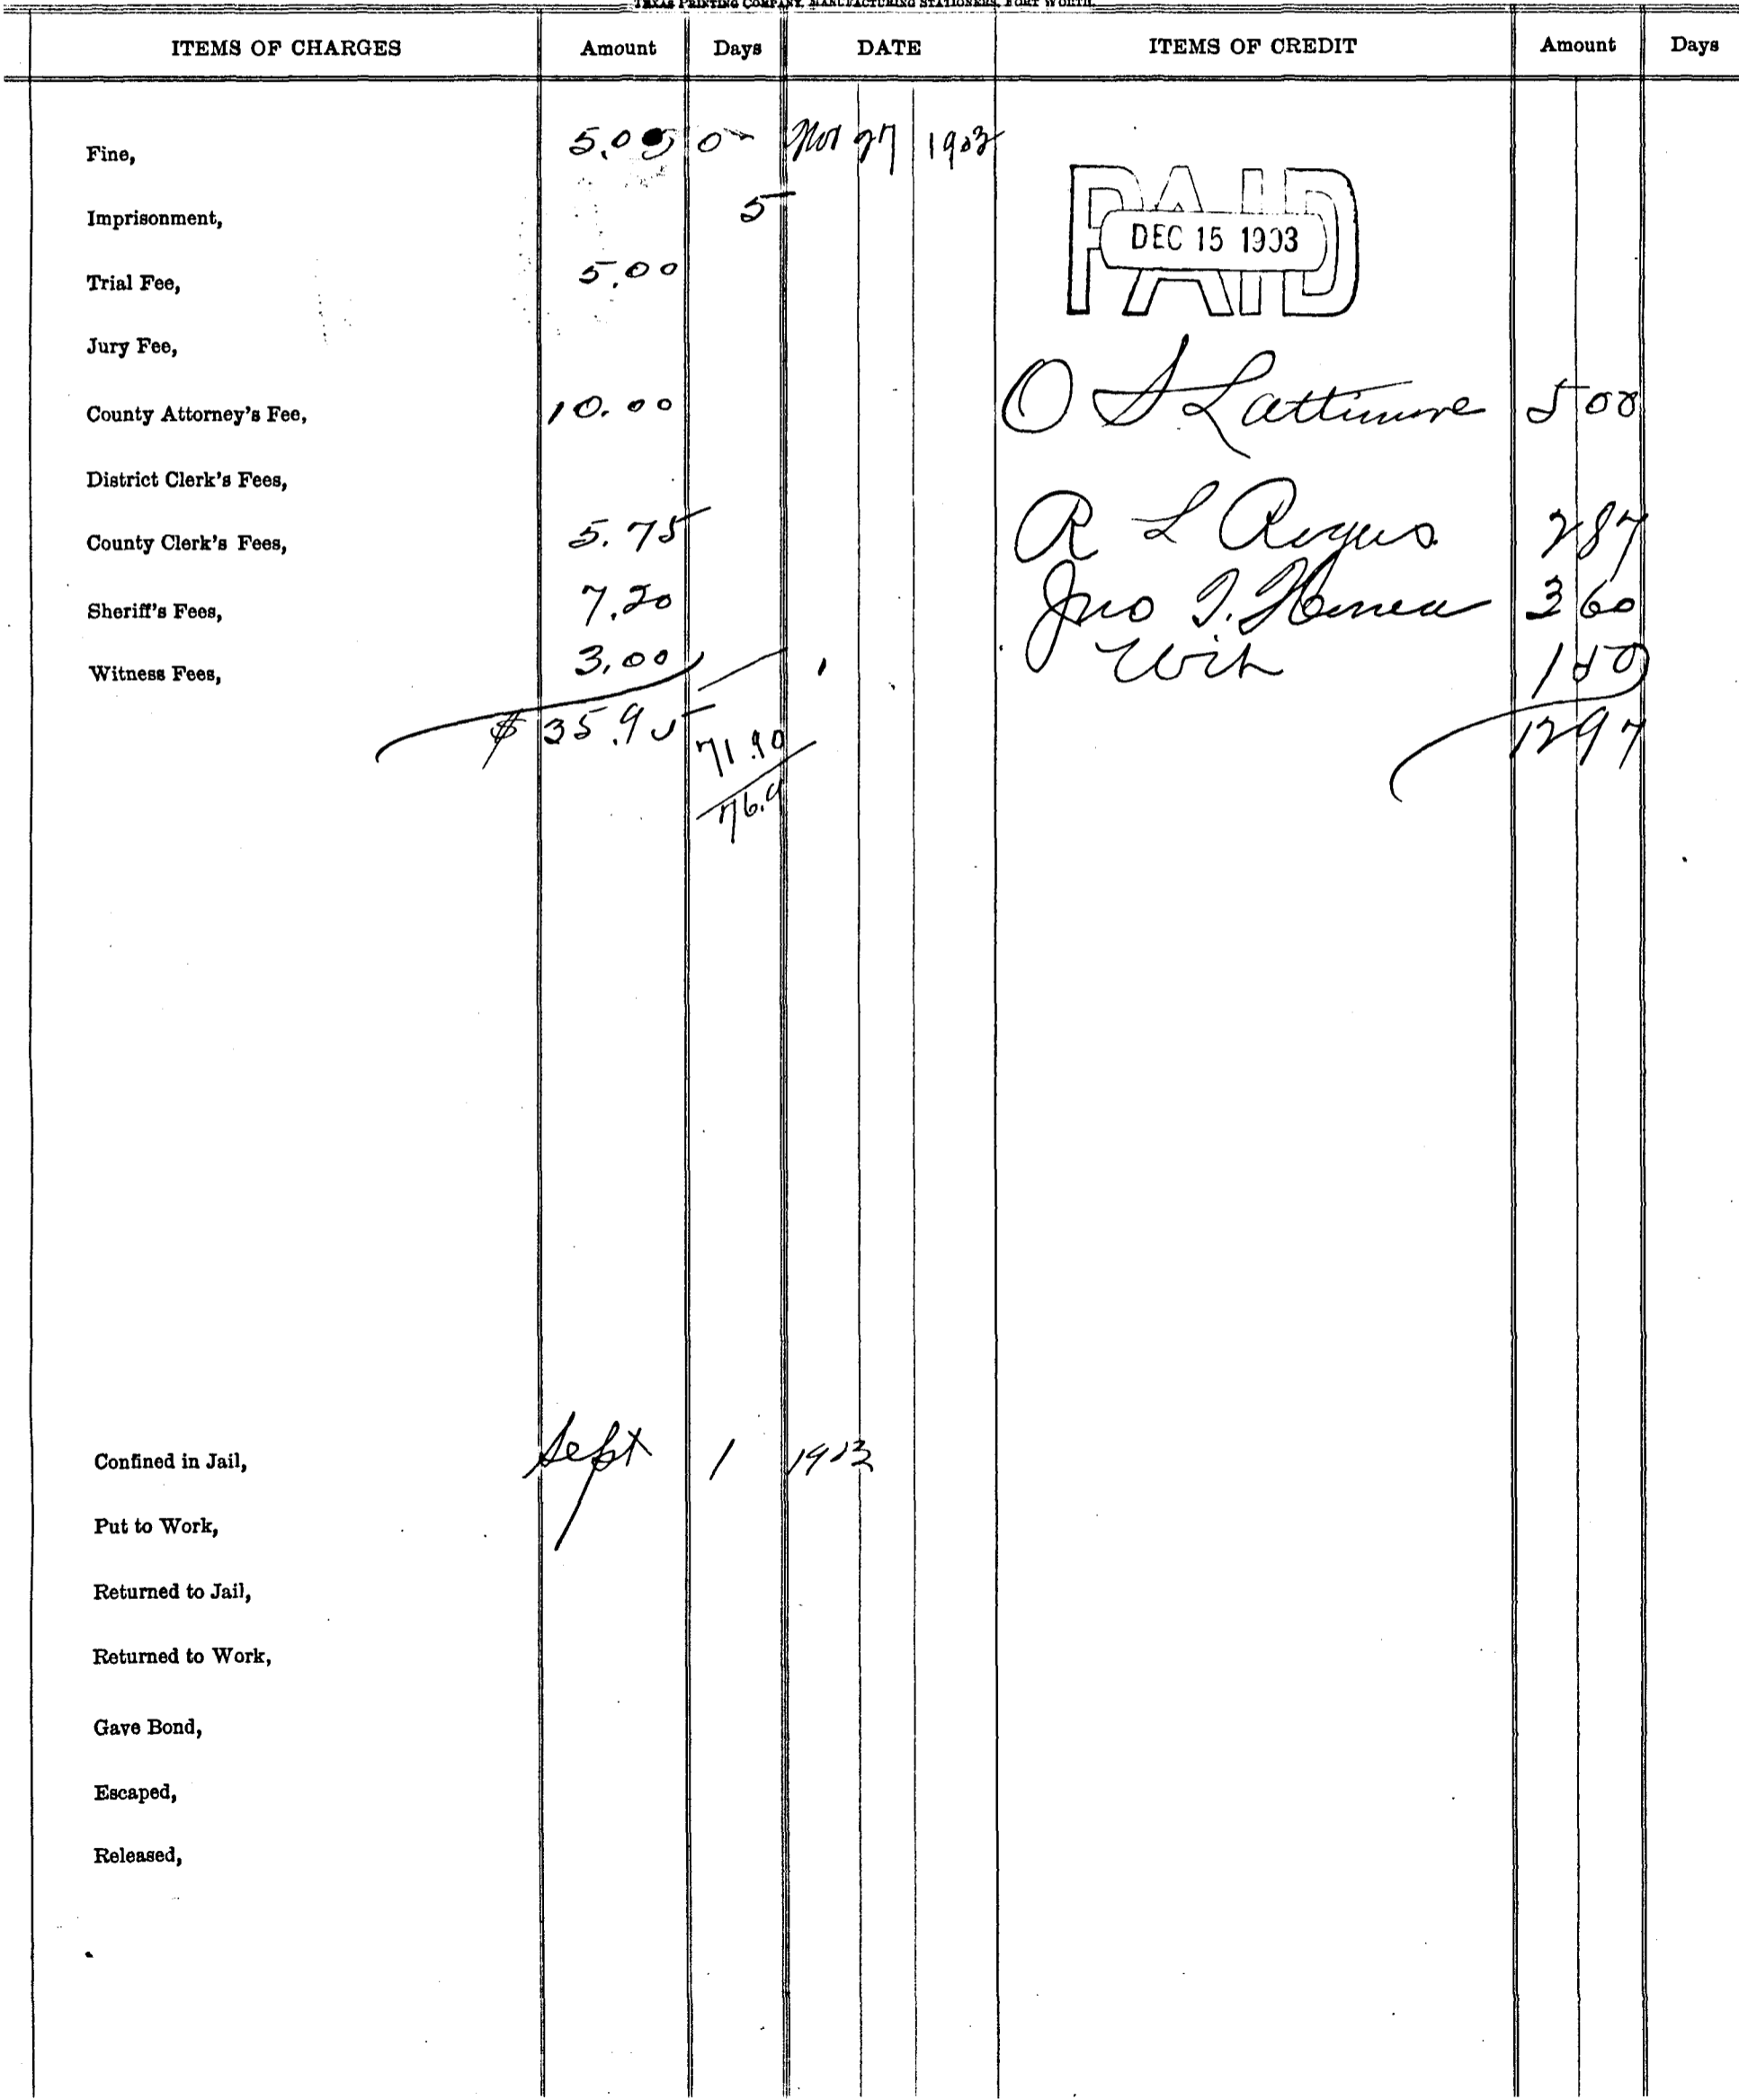 TEXAS PRINTING COMPANY, MANUFACTURING STATIONERS, FORT WORTH.
ITEMS OF CHARGES Amount Days DATE ITEMS OF CREDIT Amount Days
Fine, 5.00 Nov 27 1903
PAID
DEC 15 1903
Imprisonment, 5
Trial Fee, 5.00
Jury Fee,
County Attorney's Fee, 10.00 O S Lattimore 5 00
District Clerk's Fees,
County Clerk's Fees, 5.75 R L Rogers 2 87
Sheriff's Fees, 7.20 Jno T. 3 60
Witness Fees, 3.00 Wit 1 50
$ 35.95 71.90 12 97
76.9
Confined in Jail, Sept 1 1903
Put to Work,
Returned to Jail,
Returned to Work,
Gave Bond,
Escaped,
Released,